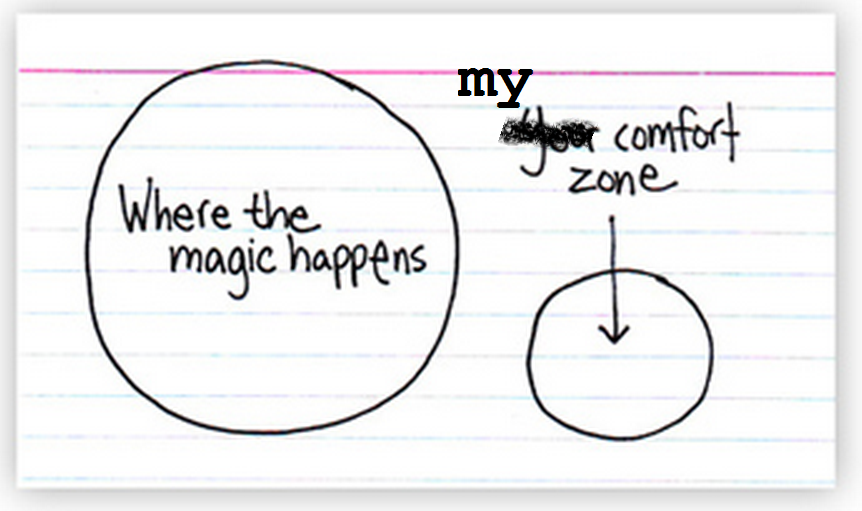 Where the
magic happens
my
your comfort
zone